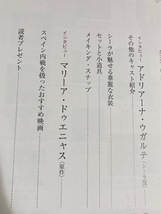 インタビュー アドリアーナ・ウガルテ
その他のキャスト紹介
シーラが魅せる華麗な衣装
セットと小道具
メイキング・スナップ
インタビュー マリーア・ドゥエニャス（原作）
スペイン内戦を扱ったおすすめ映画
読者プレゼント